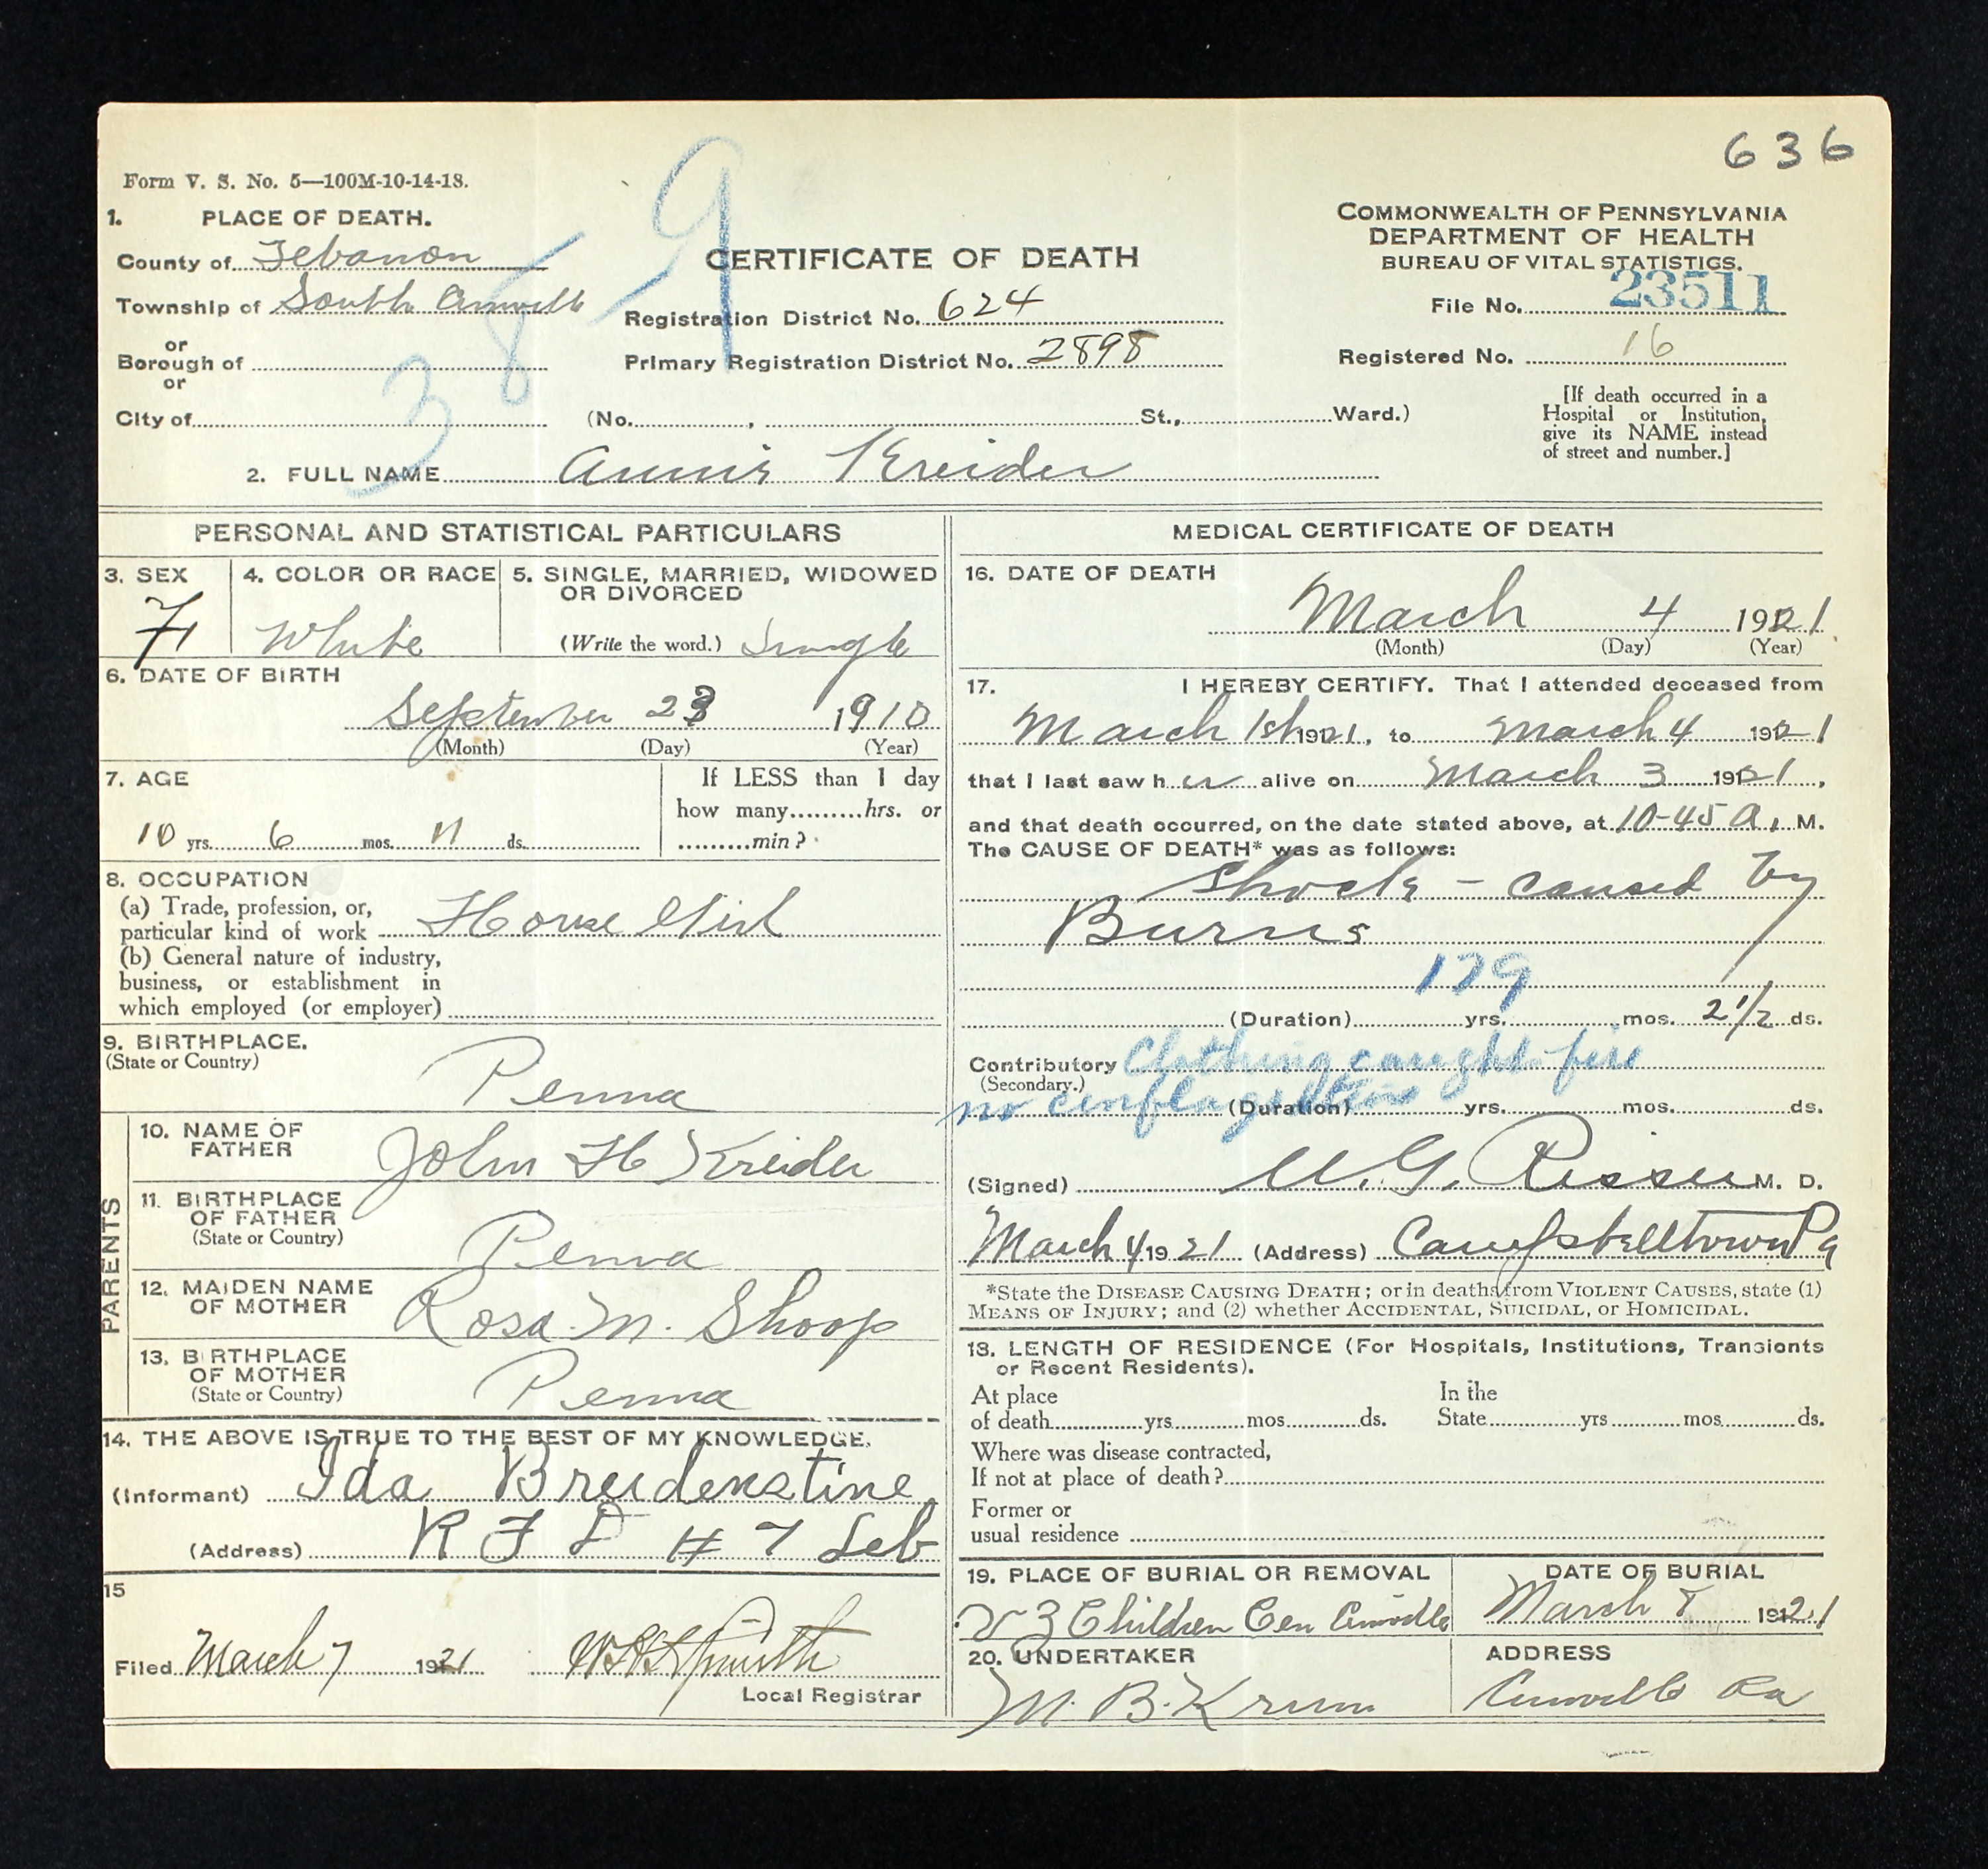 636
Form V. S. No. 5—100M-10-14-18.
1. PLACE OF DEATH.
County of Lebanon
Township of South Annville
or
Borough of
or
City of
389
CERTIFICATE OF DEATH
Registration District No. 624
Primary Registration District No. 2898
(No. , St., Ward.)
COMMONWEALTH OF PENNSYLVANIA
DEPARTMENT OF HEALTH
BUREAU OF VITAL STATISTICS.
File No. 23511
Registered No. 16
[If death occurred in a
Hospital or Institution,
give its NAME instead
of street and number.]
2. FULL NAME Annie Kreider
PERSONAL AND STATISTICAL PARTICULARS
3. SEX
F
4. COLOR OR RACE
White
5. SINGLE, MARRIED, WIDOWED
OR DIVORCED
(Write the word.) Single
6. DATE OF BIRTH
September 23 1910
(Month) (Day) (Year)
7. AGE
10 yrs. 6 mos. 11 ds.
If LESS than 1 day
how many.........hrs. or
.........min?
8. OCCUPATION
(a) Trade, profession, or,
particular kind of work House Girl
(b) General nature of industry,
business, or establishment in
which employed (or employer)
9. BIRTHPLACE.
(State or Country)
Penna
PARENTS
10. NAME OF
FATHER
John H Kreider
11. BIRTHPLACE
OF FATHER
(State or Country)
Penna
12. MAIDEN NAME
OF MOTHER
Rosa M. Shoop
13. BIRTHPLACE
OF MOTHER
(State or Country)
Penna
14. THE ABOVE IS TRUE TO THE BEST OF MY KNOWLEDGE.
(Informant) Ida Breidenstine
(Address) R F D # 7 Leb
15
Filed March 7 1921
Smith
Local Registrar
MEDICAL CERTIFICATE OF DEATH
16. DATE OF DEATH
March 4 1921
(Month) (Day) (Year)
17. I HEREBY CERTIFY. That I attended deceased from
March 1st 1921, to March 4 1921
that I last saw her alive on March 3 1921,
and that death occurred, on the date stated above, at 10-45 A. M.
The CAUSE OF DEATH* was as follows:
Shock – caused by
Burns
179
(Duration) yrs. mos. 2 1/2 ds.
Contributory Clothing caught fire
(Secondary.)
no conflagration
(Duration) yrs. mos. ds.
(Signed) W. G. Risser M. D.
March 4 1921 (Address) Campbelltown Pa
*State the DISEASE CAUSING DEATH; or in deaths from VIOLENT CAUSES, state (1)
MEANS OF INJURY; and (2) whether ACCIDENTAL, SUICIDAL, or HOMICIDAL.
18. LENGTH OF RESIDENCE (For Hospitals, Institutions, Transients
or Recent Residents).
At place
of death yrs mos ds.
In the
State yrs mos ds.
Where was disease contracted,
If not at place of death?
Former or
usual residence
19. PLACE OF BURIAL OR REMOVAL
Children Cem Annville
DATE OF BURIAL
March 8 1921
20. UNDERTAKER
M. B. Krum
ADDRESS
Annville Pa